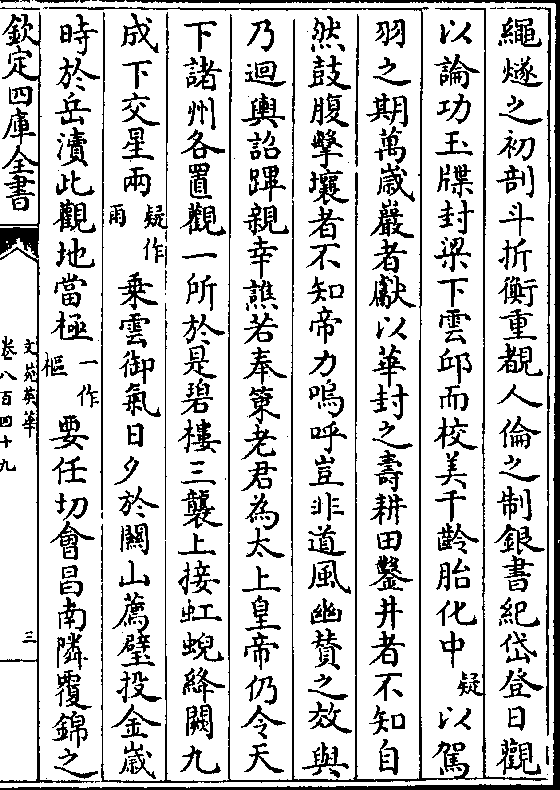 繩燧之初剖斗折衡重覩人倫之制銀書紀岱登日觀
以論功玉牒封梁下雲邱而校美千齡胎化中疑以駕
羽之期萬歲巖者獻以華封之壽耕田鑿井者不知自
然鼓腹擊壤者不知帝力嗚呼豈非道風幽贊之效與
乃迴輿詔蹕親幸譙若奉策老君為太上皇帝仍令天
下諸州各置觀一所於是碧樓三襲上接虹蜺絳闕九
成下交星兩疑作雨乘雲御氣日夕於關山薦璧投金歲
時於岳瀆此觀地當極一作樞要任切會昌南隣覆錦之
欽定四庫全書
文苑英華
卷八百四十九
三